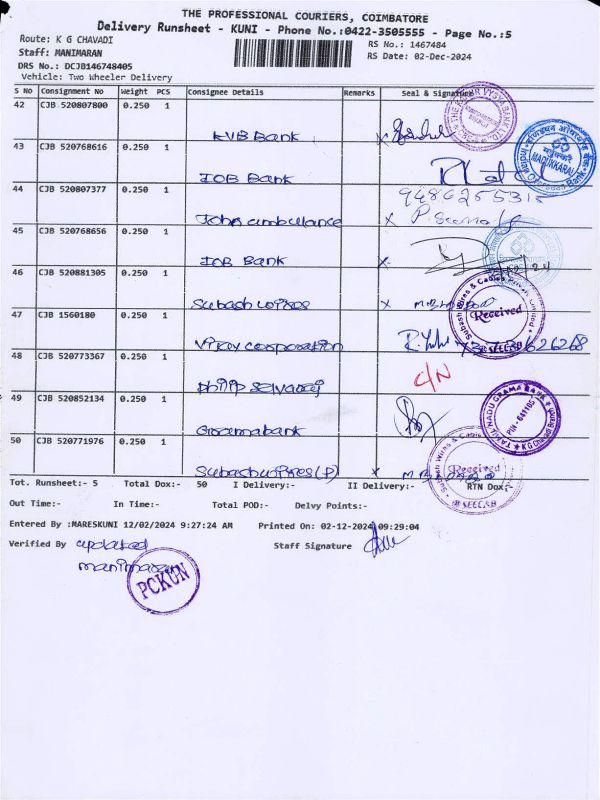 THE PROFESSIONAL COURIERS, COIMBATORE
Delivery Runsheet - KUNI - Phone No.:0422-3505555 - Page No.:5
Route: K G CHAVADI
RS No.: 1467484
Staff: MANIMARAN
RS Date: 02-Dec-2024
DRS No.: DCJB146748405
Vehicle: Two Wheeler Delivery
S NO Consignment No Weight PCS Consignee Details Remarks Seal & Signature
42 CJB 520807800 0.250 1
KVB Bank x
43 CJB 520768616 0.250 1
IOB Bank
44 CJB 520807377 0.250 1
John ambulance x
45 CJB 520768656 0.250 1
IOB Bank x
46 CJB 520881305 0.250 1
Subash wires x
47 CJB 1560180 0.250 1
Vijay corporation
48 CJB 520773367 0.250 1
C/N
Philip Selvaraj
49 CJB 520852134 0.250 1
Grama bank
50 CJB 520771976 0.250 1
Subash wires (P) x
Received
SEECAB
MADUKKARAI
Received
SEECAB
TAMIL NADU GRAMA BANK
PIN - 641105
K G Chavadi Branch
Tot. Runsheet:- 5 Total Dox:- 50 I Delivery:- II Delivery:- RTN Dox:-
Out Time:- In Time:- Total POD:- Delvy Points:-
Entered By :MARESKUNI 12/02/2024 9:27:24 AM Printed On: 02-12-2024 09:29:04
Verified By updated Staff Signature
manimaran
PCKUN